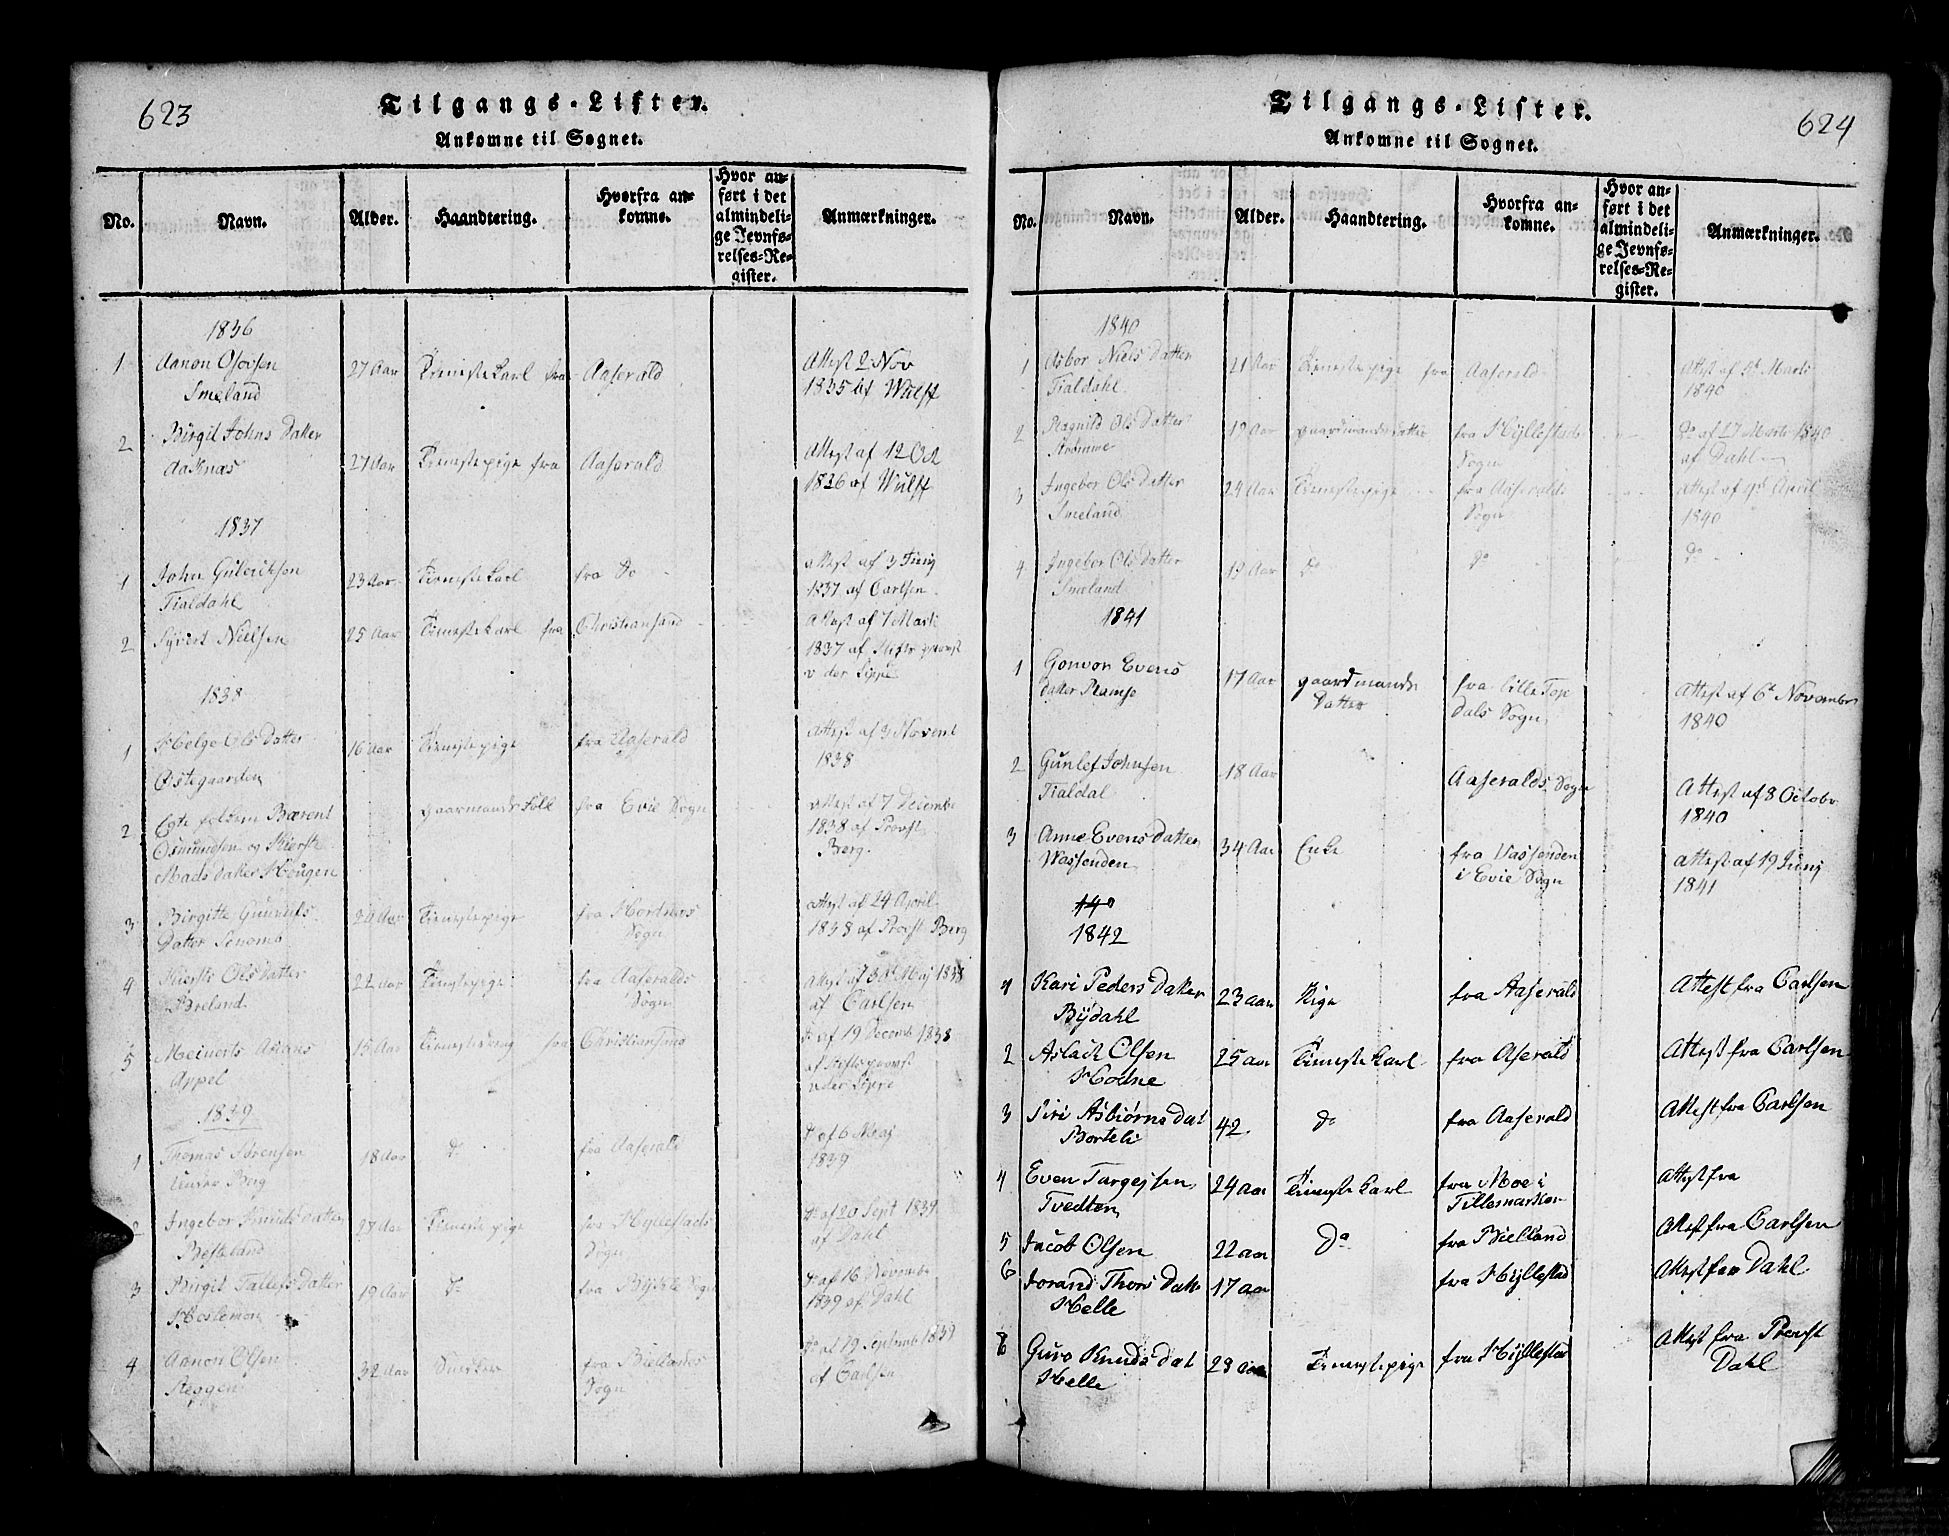 623
Tilgangs-Lister.
Ankomne til Sognet.
No. Navn. Alder. Haandtering. Hvorfra ankomne. Hvor anført i det almindelige Jevnførelses-Register. Anmærkninger.
1836
1 Aanon Smeland 27 Aar Tienistekarl fra Aaserald Attest 2 Nov 1835 af Wulff
2 Birgit Johns Datter Aaknæs 27 Aar Tienistepige fra Aaserald Attest af 12 Oct 1836 af Wulff
1837
1 John Gulerichsen Tialdahl 23 Aar Tienistekarl fra Do Attest af 3 Juny 1837 af Carlsen
2 Syvert Nielsen 25 Aar Tienistekarl fra Christiansand Attest af 7 Marti 1837 af Stiftsprovst v der Lippe
1838
1 Helge Ols Datter Østegaarden 16 Aar Tienistepige fra Aaserald Attest af 3 Novemb 1838
2 Egte folkene Bærent Osmundsen og Kierste Mads Datter Hougen gaarmands Folk fra Evie Sogn Attest af 7 Decembe 1838 af Provst Berg.
3 Birgitte Datter Aar Tienistepige fra Hortnæs Sogn Attest af 24 April 1838 af Provst Berg
4 Kierste Ols Datter Breland 22 Aar Tienistepige fra Aaseralds Sogn Attest Maj 1838 af Carlsen
5 Meinerts Appel 15 Aar fra Christiansand do af 19 Decemb 1838 af Stiftsprovst v der Lippe
1839
1 Thomas Sørensen under Berg 18 Aar do fra Aaserald do af 6 Maaj 1839
2 Ingebor Knuds Datter Besteland 27 Aar Tieneste pige fra Hyllestads Sogn do af 20 Sept 1839 af Dahl
3 Birgit Tallefs Datter 19 Aar do fra Bykle Sogn do af 16 Novembe 1839 af Dahl
4 Aanon Olsen Steggen 32 Aar Smeder fra Biellands Sogn do af 19 Septemb 1839 af Carlsen
624
Tilgangs-Lister.
Ankomne til Sognet.
No. Navn. Alder. Haandtering. Hvorfra ankomne. Hvor anført i det almindelige Jevnførelses-Register. Anmærkninger.
1840
1 Asbor Niels Datter Tialdahl 21 Aar Tienestepige fra Aaserald Attest af Marts 1840
2 Ragnild Ols Datter Strømme 19 Aar gaardmands datter fra Hyllestads Sogn do af 17 Marts 1840 af Dahl
3 Ingebor Ols Datter Smeland 24 Aar Tienestepige fra Aaseralds Sogn Attest af April 1840
4 Ingebor Ols Datter Smeland 19 Aar do do do
1841
1 Gonvor Evens datter Ramse 17 Aar gaardmands Datter fra Tille Topdals Sogn Attest af 6t Novembr 1840
2 Gunlef Johnsen Tialdal 18 Aar Aaseralds Sogn Attest af 8 Octobr 1840
3 Anne Evens Datter Wassenden 34 Aar Enke fra Vassenden i Evie Sogn Attest af 19 Juny 1841
140
1842
1 Kari Peders Datter Bÿdahl 23 aar Pige fra Aaserald Attest fra Carlsen
2 Aslack Olsen Hodne 25 aar Tieneste Karl fra Aserald Attest fra Carlsen
3 Siri Asbiørns dat Borteli 42 do fra Aaserald Attest fra Carlsen
4 Even Targejsen Tvedten 24 aar Tieneste Karl fra Moe i Tillemarken Attest fra
5 Jacob Olsen 22 aar Do fra Bielland Attest fra Carlsen
6 Jorand Thors Datt Helle 17 aar fra Hÿllestad Attest fra Dahl
8 Guro Knuds dat Helle 23 aar Tienestepige fra Hÿllestad Attest fra Provst Dahl